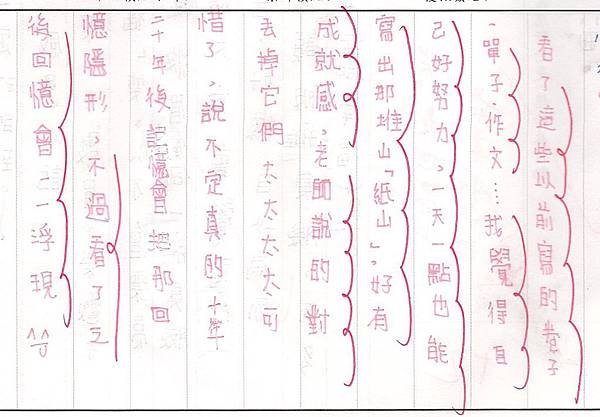 看了這些以前寫的卷子
、單子、作文…我覺得自
己好努力，一天一點也能
寫出那堆山「紙山」，好有
成就感，老師說的對
丟掉它們太太太太可
惜了，說不定真的十年
二十年後記憶會把那回
憶隱形，不過看了之
後回憶會一一浮現^^